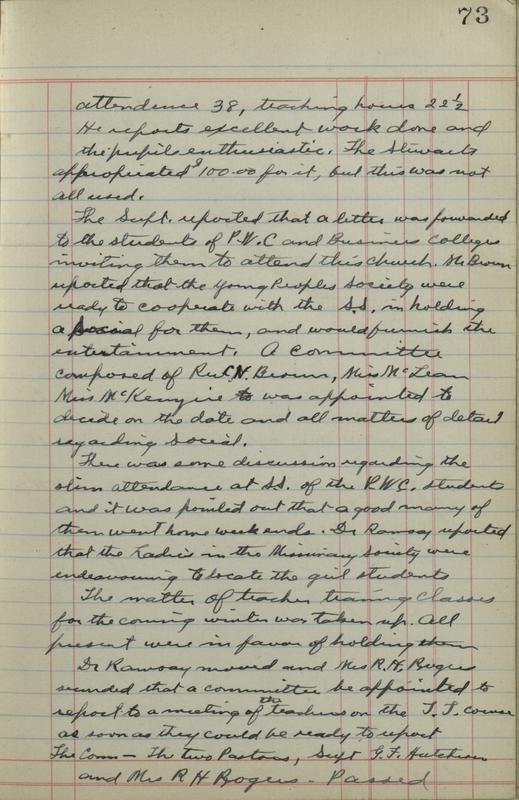 73
attendence 38, teaching hours 22½
He reports excellent work done and
the pupils enthusiastic. The Stewarts
appropriated $100.00 for it, but this was not
all used.
The Supt. reported that a letter was forwarded
to the students of P.W.C and Business Colleges
inviting them to attend this church. Mr Brown
reported that the Young Peoples Society were
ready to cooperate with the S.S. in holding
a Social for them, and would furnish the
entertainment. A Committee
composed of Rev C.N. Brown, Miss McLean
Miss McKenzie to was appointed to
decide on the date and all matters of detail
regarding Social.
There was some discussion regarding the
slim attendance at S.S. of the P.W.C. students
and it was pointed out that a good many of
them went home week ends. Dr Ramsay reported
that the Ladies in the Missionary Society were
endeavouring to locate the girl students
The matter of teacher training classes
for the coming winter was taken up. All
present were in favor of holding them
Dr Ramsay moved and Mrs R.H. Rogers
seconded that a committee be appointed to
report to a meeting of the teachers on the T.T. course
as soon as they could be ready to report
The Com – The two Pastors, Supt G.F. Hutcheson
and Mrs R H Rogers - Passed